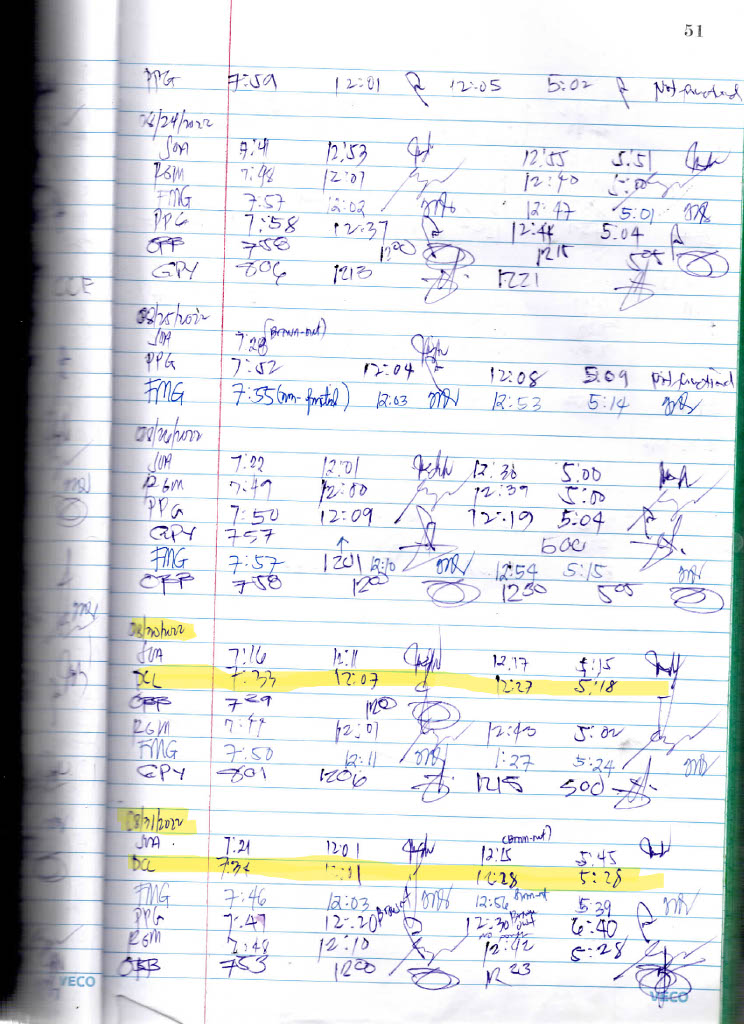 51
PPG 7:59 12:01 12:05 5:02
08/24/2022
JUA 7:41 12:53 12:55 5:51
RGM 7:48 12:07 12:40 5:00
FMG 7:57 12:02 12:47 5:01
PPG 7:58 12:37 12:44 5:04
758 1200 1215 505
GPY 806 1213 1221
08/25/2022
JUA 7:28 (Brown-out)
PPG 7:52 12:04 12:08 5:09
FMG 7:55 12:03 12:53 5:14
08/26/2022
JUA 7:22 12:01 12:38 5:00
RGM 7:49 12:00 12:39 5:00
PPG 7:50 12:09 12:19 5:04
GPY 757 500
FMG 7:57 1201 12:10 12:54 5:15
758 1200 1230 505
08/30/2022
JUA 7:16 12:11 12:17 5:15
DCL 7:33 12:07 12:27 5:18
739 1200
RGM 7:44 12:01 12:43 5:02
FMG 7:50 12:11 1:27 5:24
GPY 801 1206 1215 500
08/31/2022
JUA 7:21 12:01 12:15 (Brown-out) 5:45
DCL 7:34 12:28 5:28
FMG 7:46 12:03 12:56 Brown-out 5:39
PPG 7:47 12:20 12:30 6:40
RGM 7:48 12:10 12:42 5:28
753 1200 1223
VECO VECO